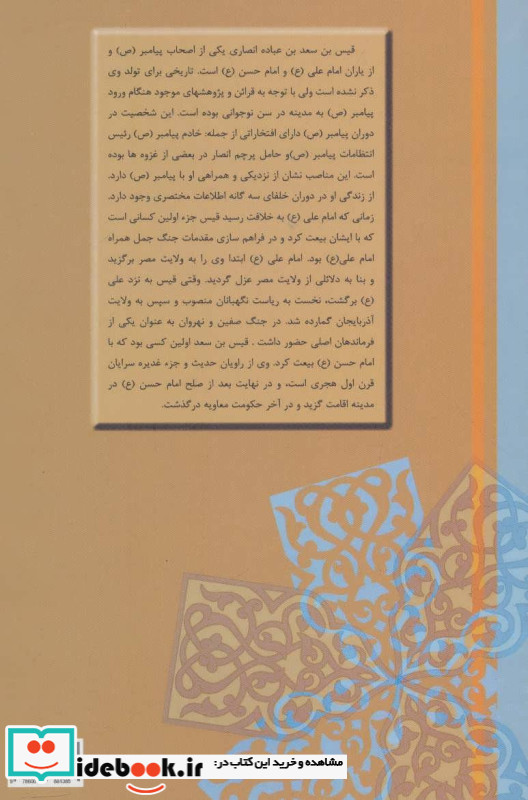 قیس بن سعد بن عباده انصاری یکی از اصحاب پیامبر (ص) و
از یاران امام علی (ع) و امام حسن (ع) است. تاریخی برای تولد وی
ذکر نشده است ولی با توجه به قرائن و پژوهشهای موجود هنگام ورود
پیامبر (ص) به مدینه در سن نوجوانی بوده است. این شخصیت در
دوران پیامبر (ص) دارای افتخاراتی از جمله: خادم پیامبر (ص) رئیس
انتظامات پیامبر (ص)و حامل پرچم انصار در بعضی از غزوه ها بوده
است. این مناصب نشان از نزدیکی و همراهی او با پیامبر (ص) دارد.
از زندگی او در دوران خلفای سه گانه اطلاعات مختصری وجود دارد.
زمانی که امام علی (ع) به خلافت رسید قیس جزء اولین کسانی است
که با ایشان بیعت کرد و در فراهم سازی مقدمات جنگ جمل همراه
امام علی(ع) بود. امام علی (ع) ابتدا وی را به ولایت مصر برگزید
و بنا به دلائلی از ولایت مصر عزل گردید. وقتی قیس به نزد علی
(ع) برگشت، نخست به ریاست نگهبانان منصوب و سپس به ولایت
آذربایجان گمارده شد. در جنگ صفین و نهروان به عنوان یکی از
فرماندهان اصلی حضور داشت . قیس بن سعد اولین کسی بود که با
امام حسن (ع) بیعت کرد. وی از راویان حدیث و جزء غدیره سرایان
قرن اول هجری است، و در نهایت بعد از صلح امام حسن (ع) در
مدینه اقامت گزید و در آخر حکومت معاویه درگذشت.
مشاهده و خرید این کتاب در:
idebook.ir